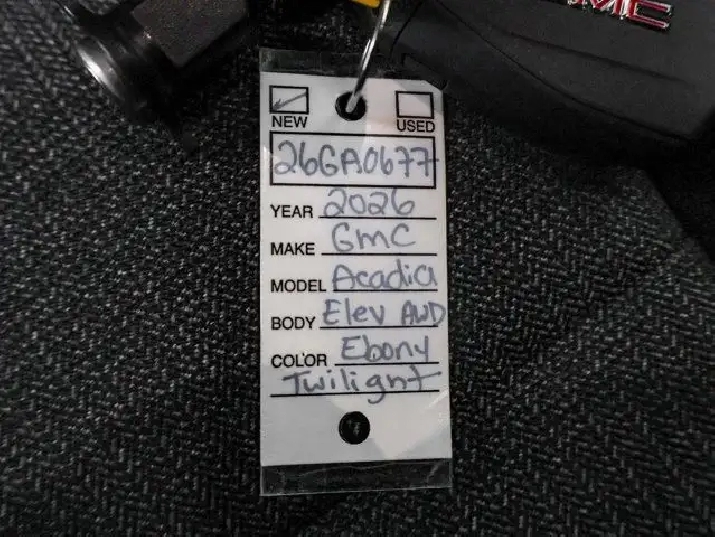 GMC
NEW USED
26GA0677
YEAR 2026
MAKE GMC
MODEL Acadia
BODY Elev AWD
COLOR Ebony
Twilight